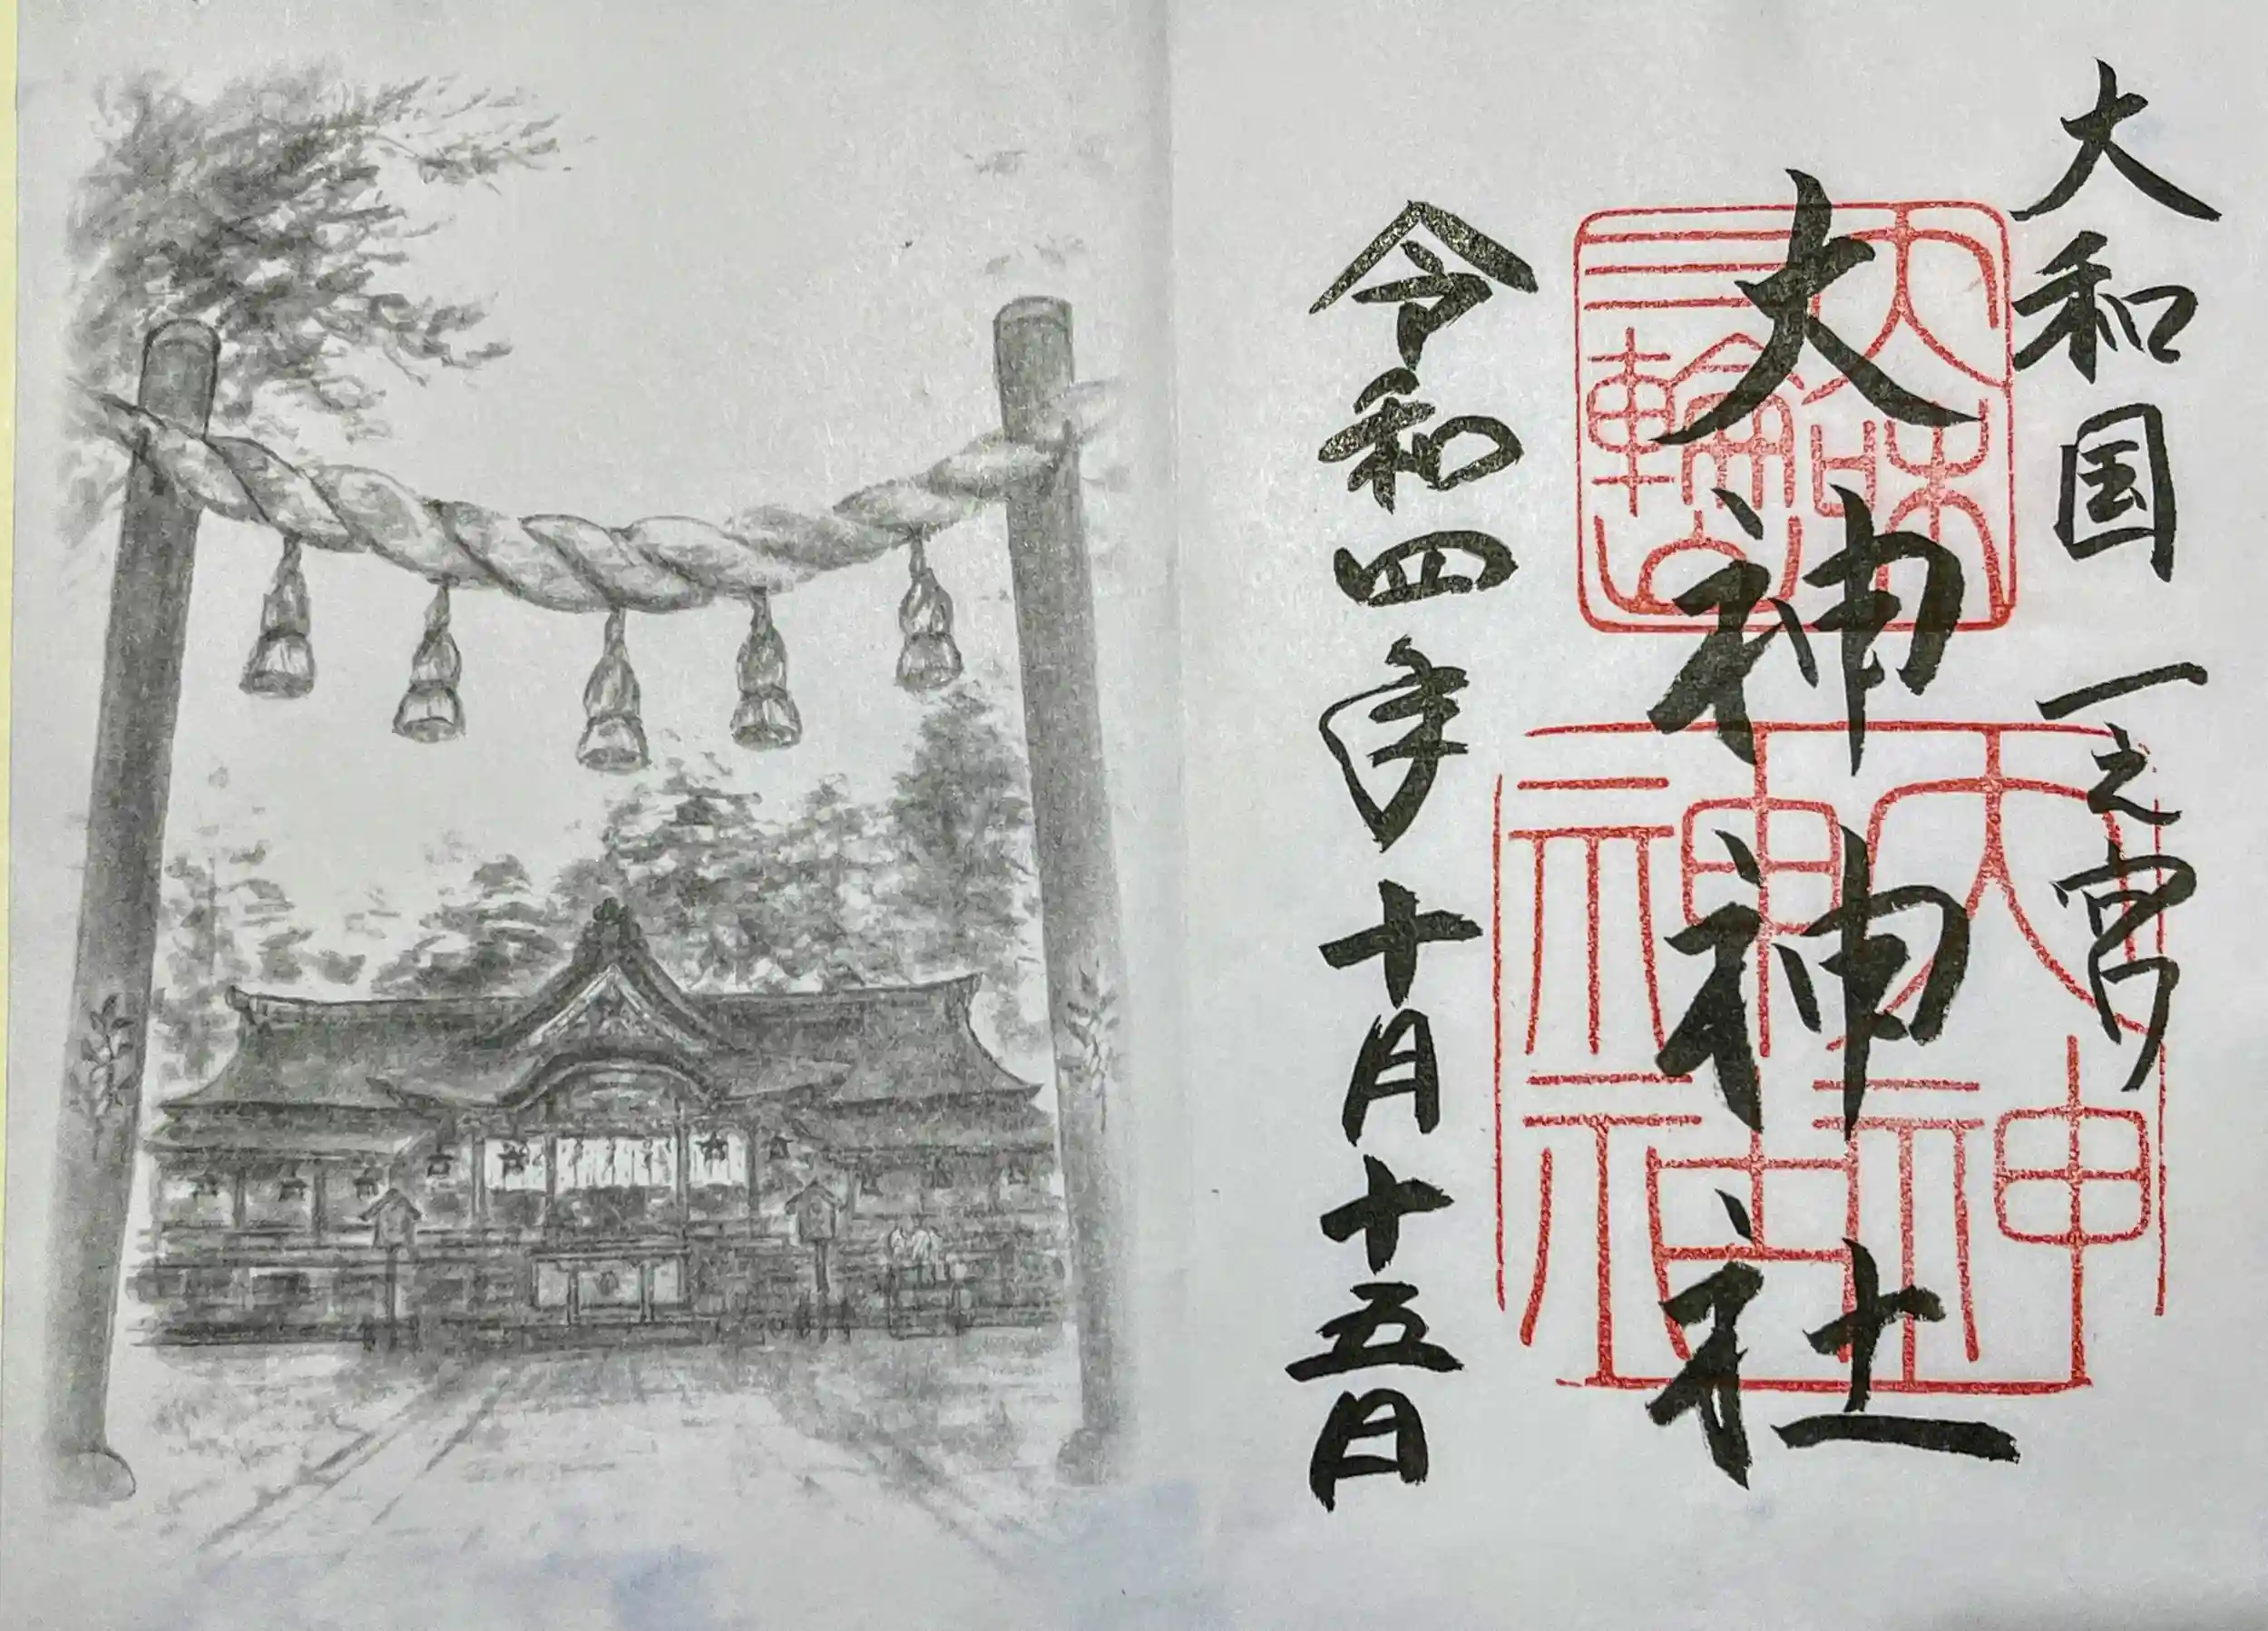 大和国 一之宮
大神神社
令和四年十月十五日
大和
三輪山